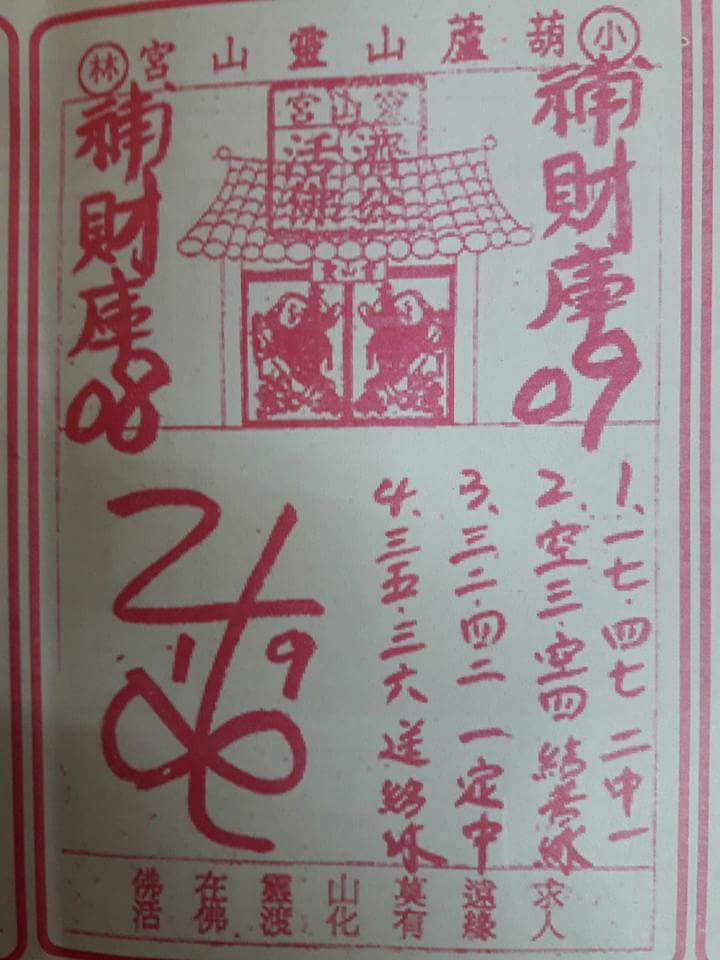 小葫蘆山靈山宮林
靈山宮
濟公
活佛
補財庫09
補財庫08
1、一七.四七 二中一
2、空三.空四 結善緣
3、三二.四二 一定中
4、三五.三六 送給你
1 9
佛在靈山莫遠求
活佛渡化有緣人